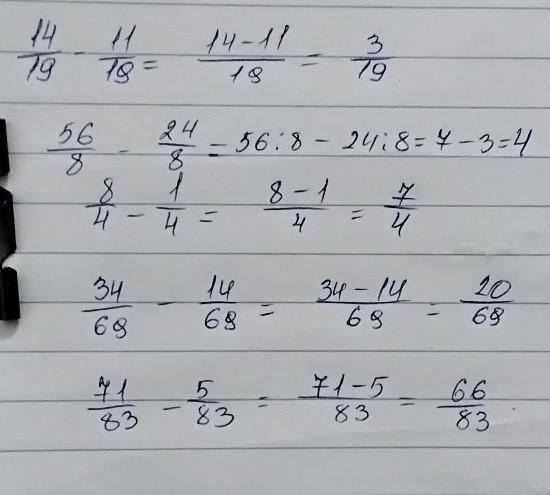 14/19 - 11/19 = 14-11/19 = 3/19
56/8 - 24/8 = 56:8 - 24:8 = 7-3=4
8/4 - 1/4 = 8-1/4 = 7/4
34/69 - 14/69 = 34-14/69 = 20/69
71/83 - 5/83 = 71-5/83 = 66/83